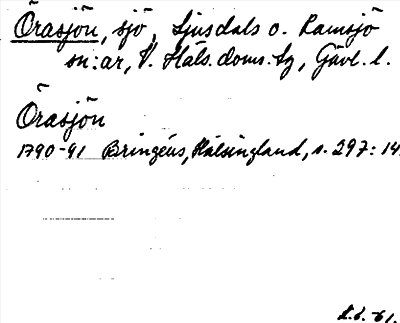 Örasjön, sjö, Ljusdals o. Ramsjö
sn:ar, V. Häls. doms. tg, Gävl. l.
Örasjön
1790-91 Bringéus, Hälsingland, s. 297: 14.